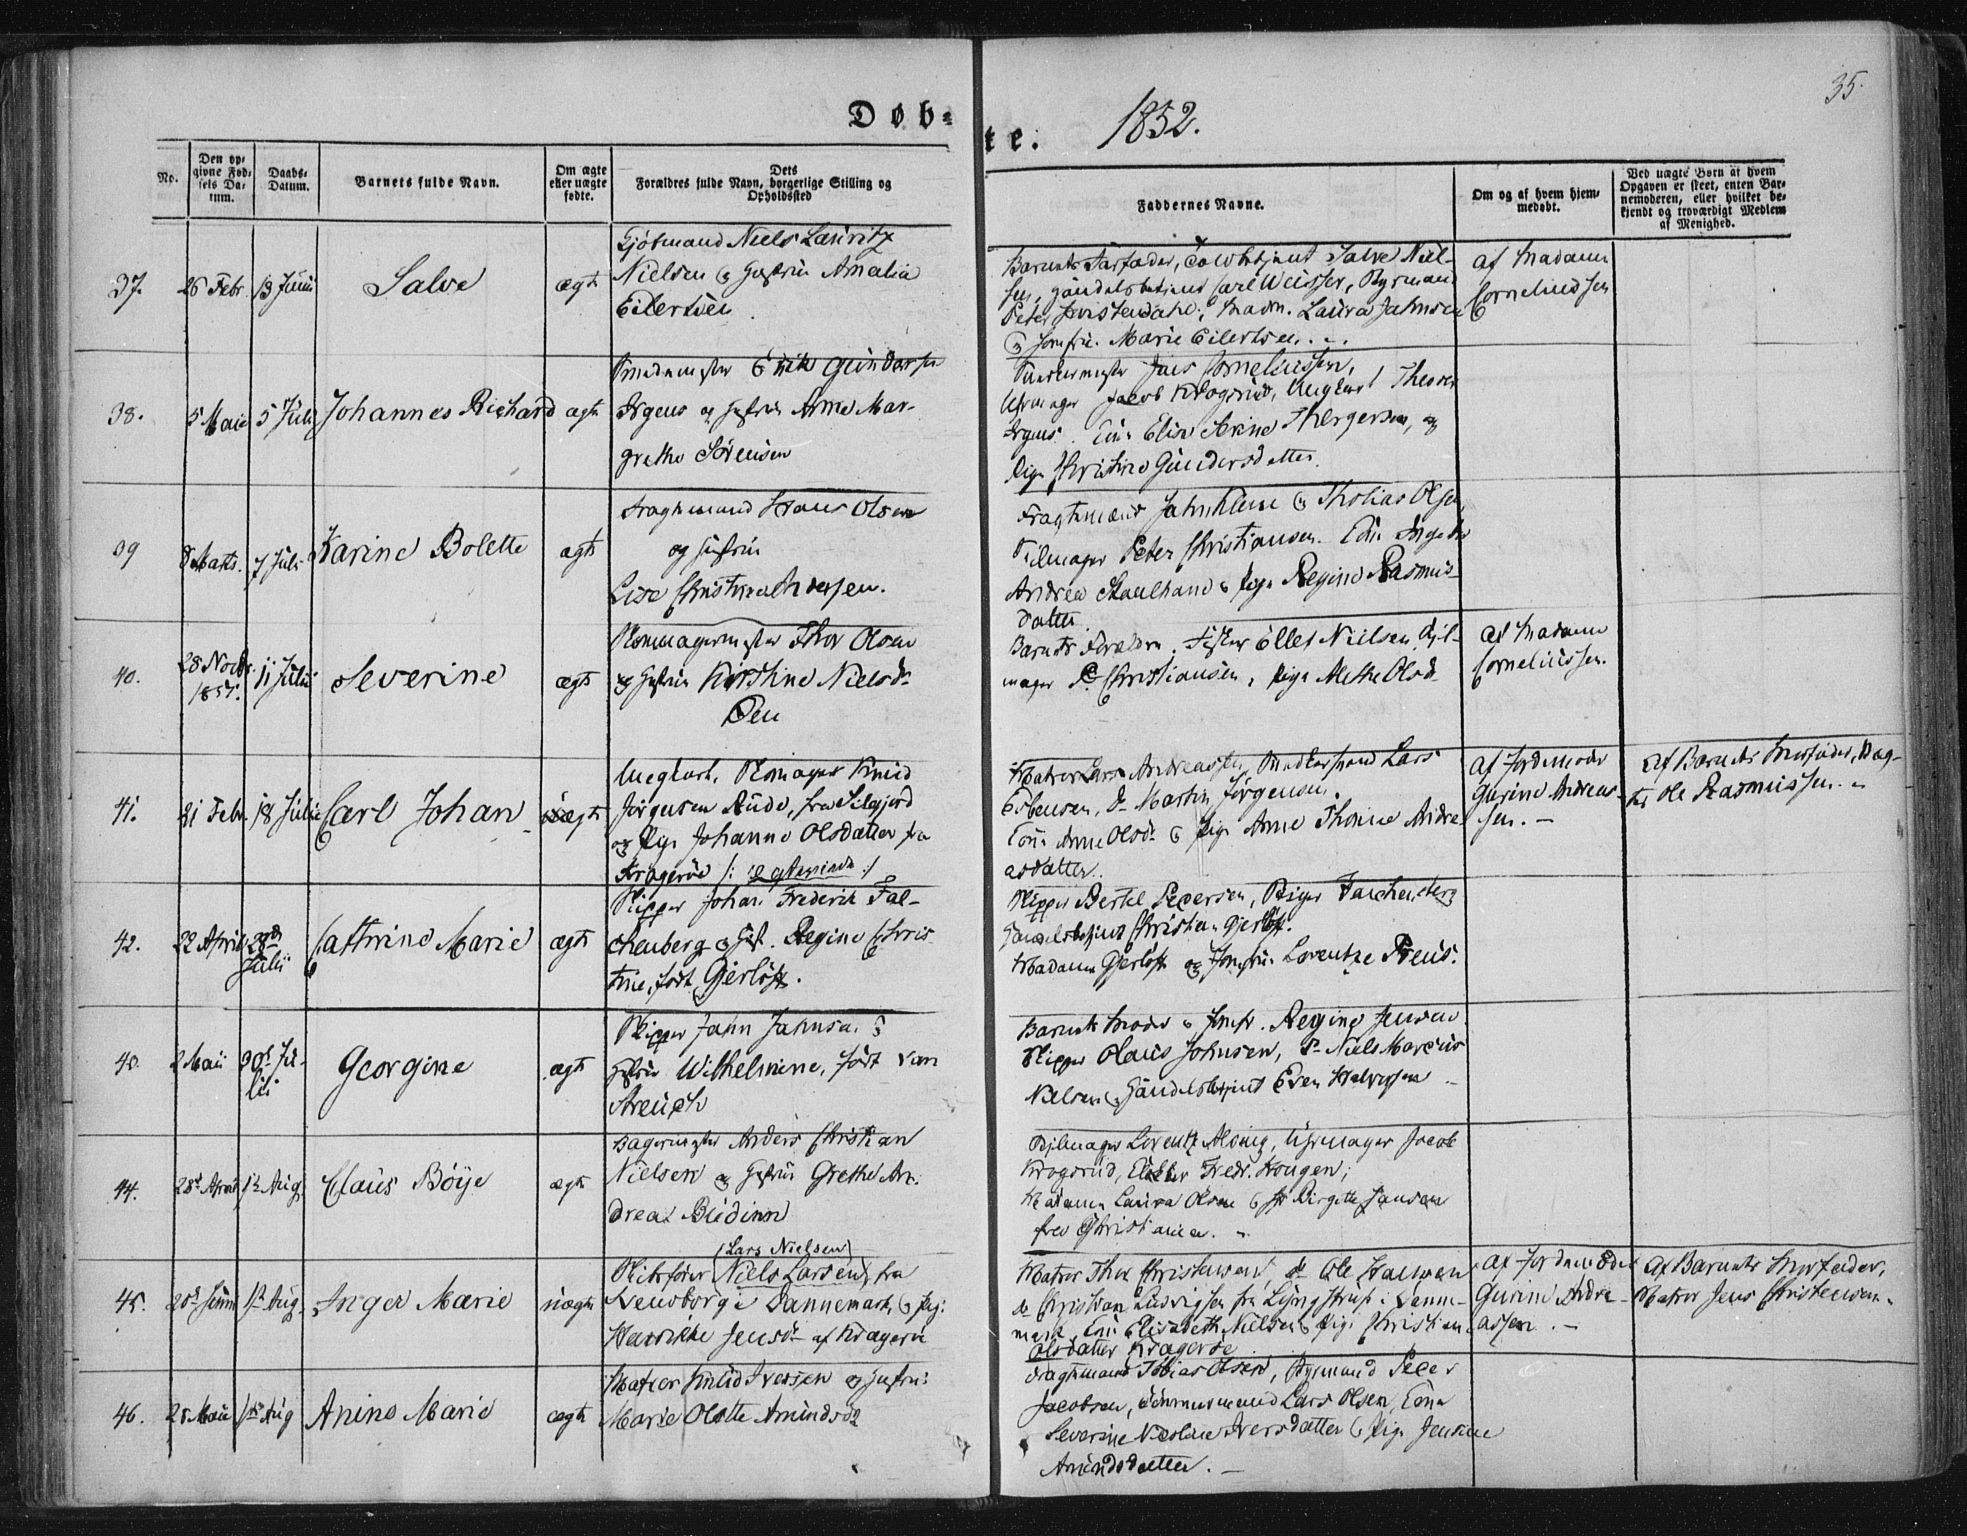 35.
Døb-
te. 1852.
No.
Den op-
givne Fød-
sels Da-
tum.
Daabs-
Datum.
Barnets fulde Navn.
Om ægte
eller uægte
fødte.
Dets
Forældres fulde Navn, borgerlige Stilling og
Opholdssted
Faddernes Navne.
Om og af hvem hjem-
medøbt.
Ved uægte Børn af hvem
Opgaven er skeet, enten Bar-
nemoderen, eller hvilket be-
kjendt og troværdigt Medlem
af Menighed.
37. 26 Febr. 13 Junii Salve ægte
Nielsen & Hustrue Amalia
Eilertsen
Barnets Farfader, Salve Niel-
sen, Handelsbetjent Carl Weisser,
Peter Madm. Laura Jahnsen
& Jomfru Marie Eilertsen.
af Madame
Corneliussen
38. 5 Maii 5 Julii Johannes Richard ægte
Erik Gundersen
og Hustrue Anne Mar-
grethe Sörensen
Jens Corneliussen,
Uhrmager Jacob Krogsrud, Ungkarl
Elise Serine Thergersen, og
Pige Christine Gundersdatter.
39 8 Marts. 7 Julii Karine Bolette ægte
Fragtemand Hans Olsen
og Hustrue
Lise Christine Andersen.
Fragtemænd Jahn Klem & Thobias Olsen
Seilmager Peter Christiansen.
Andrea & Pige Regine Rasmus-
datter.
40. 28 Novbr.
1851. 11 Julii Severine ægte
Thor Olsen
og Hustrue Kirstine Nielsdr
Barnets Forældre. Ellef Nielsen, Seil-
mager P. Christiansen, Pige Methe Olsdr
af Madame
Corneliussen.
41. 21 Febr. 18 Julii Carl Johan uægte
Ungkarl, Knud
Jörgensen Rude, fra Silgjord
og Pige Johanne Olsdatter fra
Kragerøe
Matros Lars Andreassen, Lars
Esbensen, do Martin Jörgensen.
Kone Anne Olsdr & Pige Anne Thomine Andre-
asdatter.
af Jordemoder
Gurine Andreas-
sen. -
Af Barnets Morfader,
Ole Rasmussen. -
42. 22 April 28de
Julii Cathrine Marie ægte
Skipper Johan Frederik Fal-
chenberg & Hust. Regine Chris-
tine, født Gjerlöff.
Skipper Bertel Pedersen, Birger Falchenberg
Handelsbetjent Christian Gjerlöff.
Madame Gjerlöff og Jomfrue Lorentze Preus.
43. 2 Maii 30te Ju-
lii Georgine ægte
Skipper Jahn Jahnsen &
Hustrue Wilhelmine, født van
Barnets Moder & Jomfr. Regine Jensen
Skipper Olaus Johnsen, Sr Niels Marcus
Nielsen & Handelsbetjent Even Halvorsen
44. 28de April 1ste Aug. Claus Böye ægte
Bagermester Anders Christian
Nielsen og Hustrue Grethe An-
drea Budinn
Seilmager Lorentz Alsing, Uhrmager Jacob
Krogsrud, Fredr. Hougen;
Madame Laura Olsen & Jfr Birgitte Jansen
fra Christiania.
45. 20de Junii 1ste Aug. Inger Marie uægte
(Lars Nielsen)
Niels Larsen, fra
Svensborg i Dannemark, & Pige
Henrikke Jensdr af Kragerøe
Matros Thor Christensen, do Ole Halvorsen
do Christian Ludvigsen fra Lyngstrup i Denne-
mark, Kone Elisabeth Nielsen & Pige Christiane
Olsdatter Kragerøe
Af Jordemoder
Gurine Andre-
assen. -
Af Barnets Morfader,
Matros Jens Christensen.
46. 21 Maii 1ste Aug Anine Marie ægte
Matros Knud Iversen og Hustrue
Marie Olette Amundsdr
Fragtemand Tobias Olsen, Peter
Jacobsen, Tömmermand Lars Olsen, Kone
Severine Nicoline Iversdatter & Pige Jensine
Amundsdatter. -